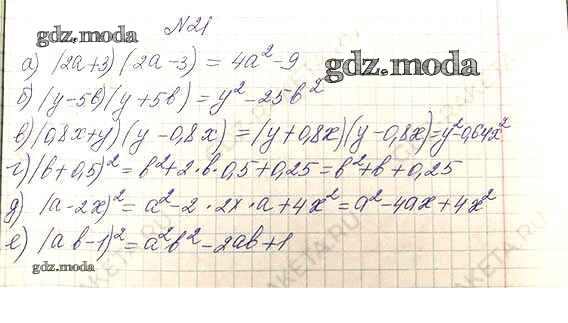 №21
gdz.moda
а) (2a+3)(2a-3) = 4a²-9
gdz.moda
б) (y-5в)(y+5в) = y²-25в²
в) (0,8x+y)(y-0,8x) = (y+0,8x)(y-0,8x)=y²-0,64x²
г) (в+0,5)² = в²+2·в·0,5+0,25 = в²+в+0,25
д) (a-2x)² = a²-2·2x·a+4x² = a²-4ax+4x²
е) (aв-1)² = a²в²-2aв+1
gdz.moda